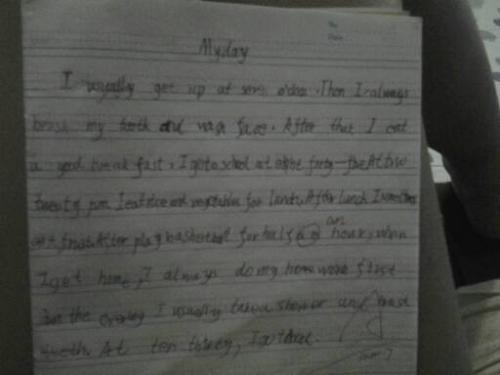 My day
I usually get up at o'cloc. Then I always
brush my teeth and face. After that I eat
a good break fast. I go to school at eight forty-five At
twenty p.m. I eat rice and vegetables for lunch. After lunch I
After play basketball for half an hour, when
I get home, I always do my home work first
In the I usually take a shower and
teeth. At ten thirty, I